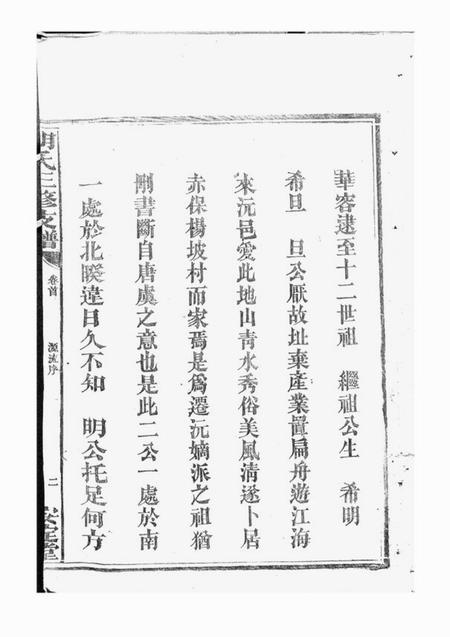 華容逮至十二世祖　繼祖公生　希明
希旦　旦公厭故址棄產業置扁舟遊江海
來沅邑愛此地山青水秀俗美風淸遂卜居
赤保楊坡村而家焉是爲遷沅嫡派之祖猶
刪書斷自唐虞之意也是此二公一處於南
一處於北睽違日久不知　明公托足何方
胡氏三修支譜
卷首
源流序
二
安定堂